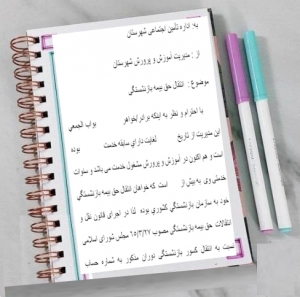 به: اداره تأمین اجتماعی شهرستان
از : مدیریت آموزش و پرورش شهرستان
موضوع : انتقال حق بیمه بازنشستگی
با احترام و نظر به اینکه برادر/خواهر بواب الجمعي
این مدیریت از تاریخ لغایت دارای سابقه خدمت بوده
است و هم اکنون در آموزش و پرورش مشغول خدمت می باشد و سنوات
خدمتی وی به بیش از است که خواهان انتقال حق بیمه بازنشستگی
خود به سازمان بازنشستگی کشوری بوده لذا در اجرای قانون نقل و
انتقالات حق بیمه بازنشستگی مصوب ۶۵/۳/۲۷ مجلس شورای اسلامی
نسبت به انتقال کسور بازنشستگی دوران مذکور به شماره حساب